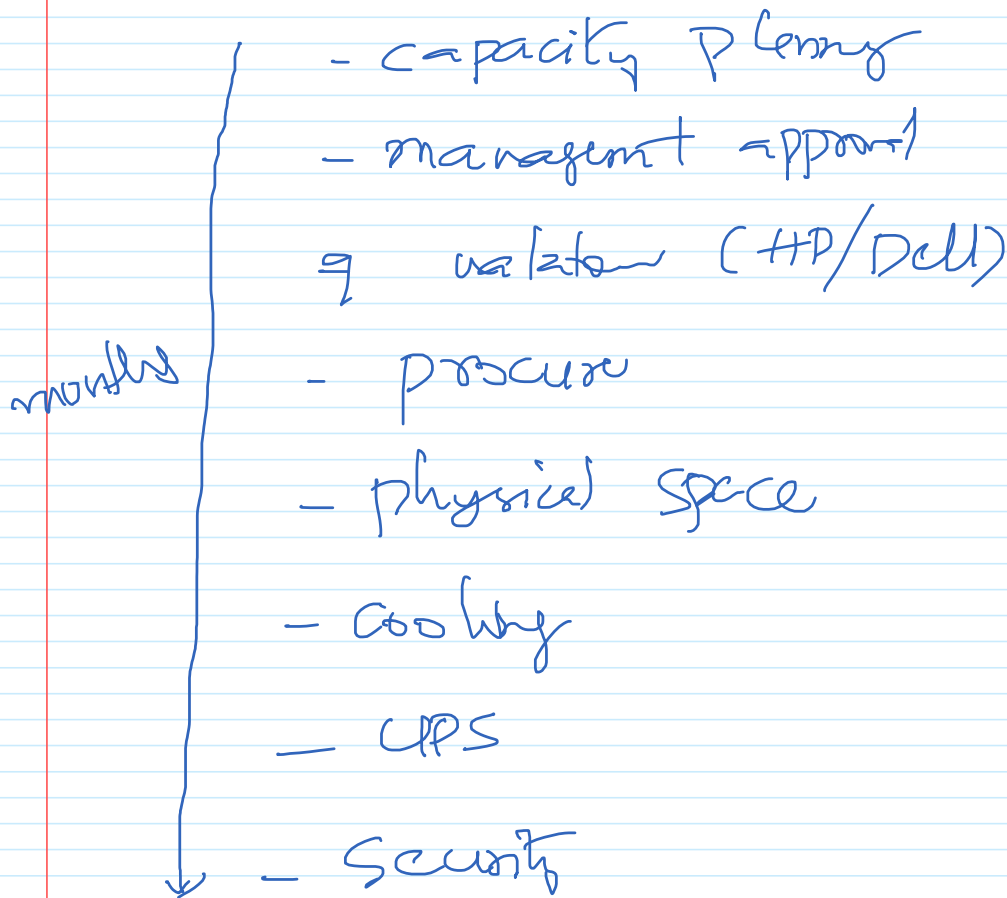 - capacity Planning
- management approval
months
- evaluation (HP/Dell)
- procure
- physical space
- cooling
- UPS
- Security